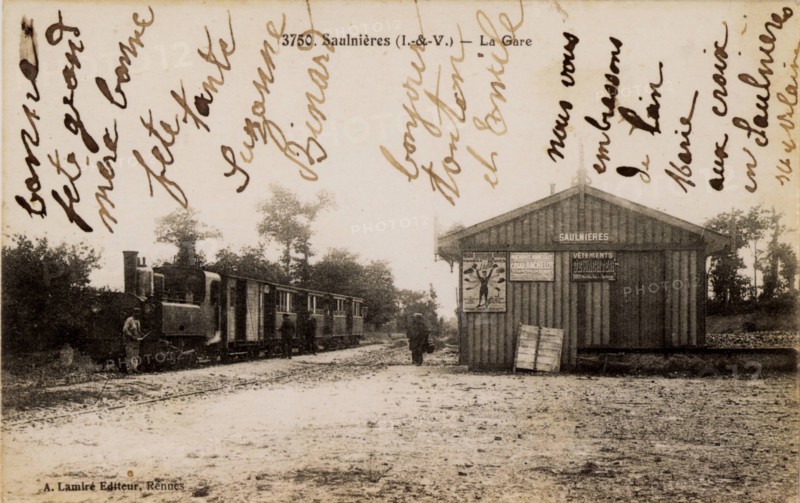 3750. Saulnières (I.-&-V.) — La Gare
bonne
fete grand
mere bonne
fete tante
Suzanne
Binard
bonjour
tonton
et Emile
nous vous
embrassons
de loin
Marie
aux croix
en Saulnières
SAULNIÈRES
VÊTEMENTS
A. Lamiré Editeur, Rennes
PHOTO12